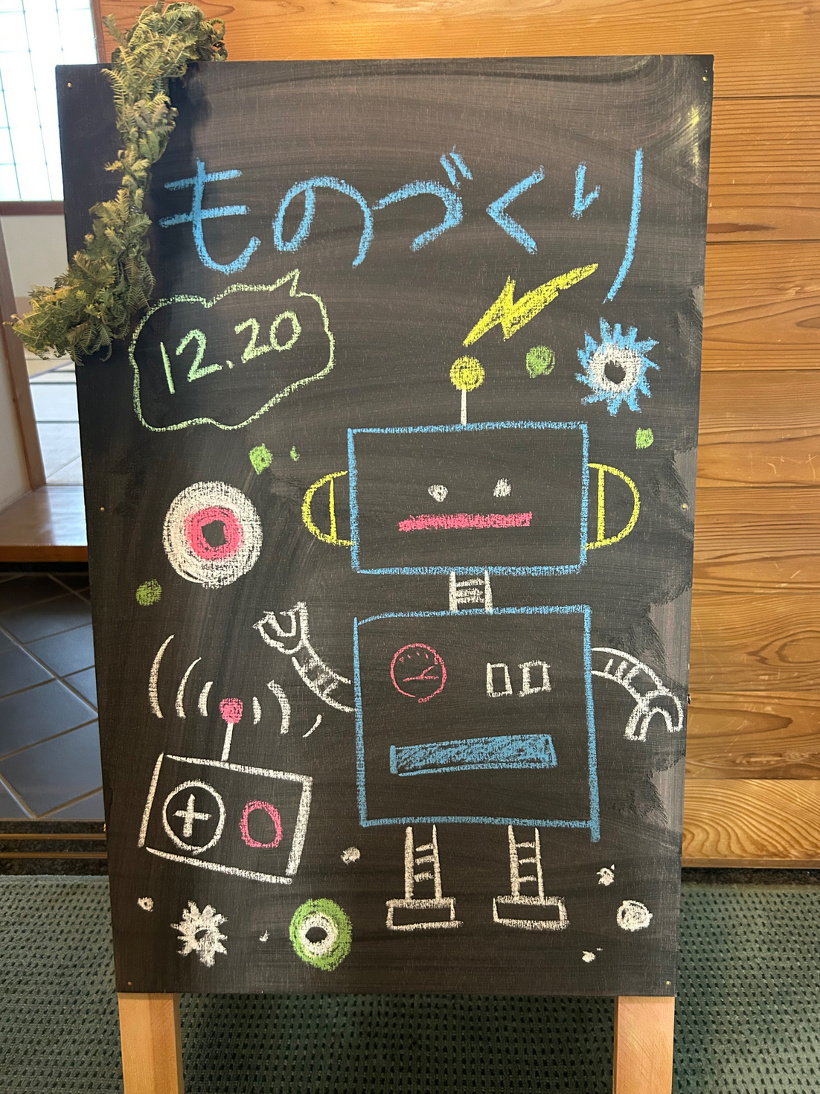 ものづくり
12.20